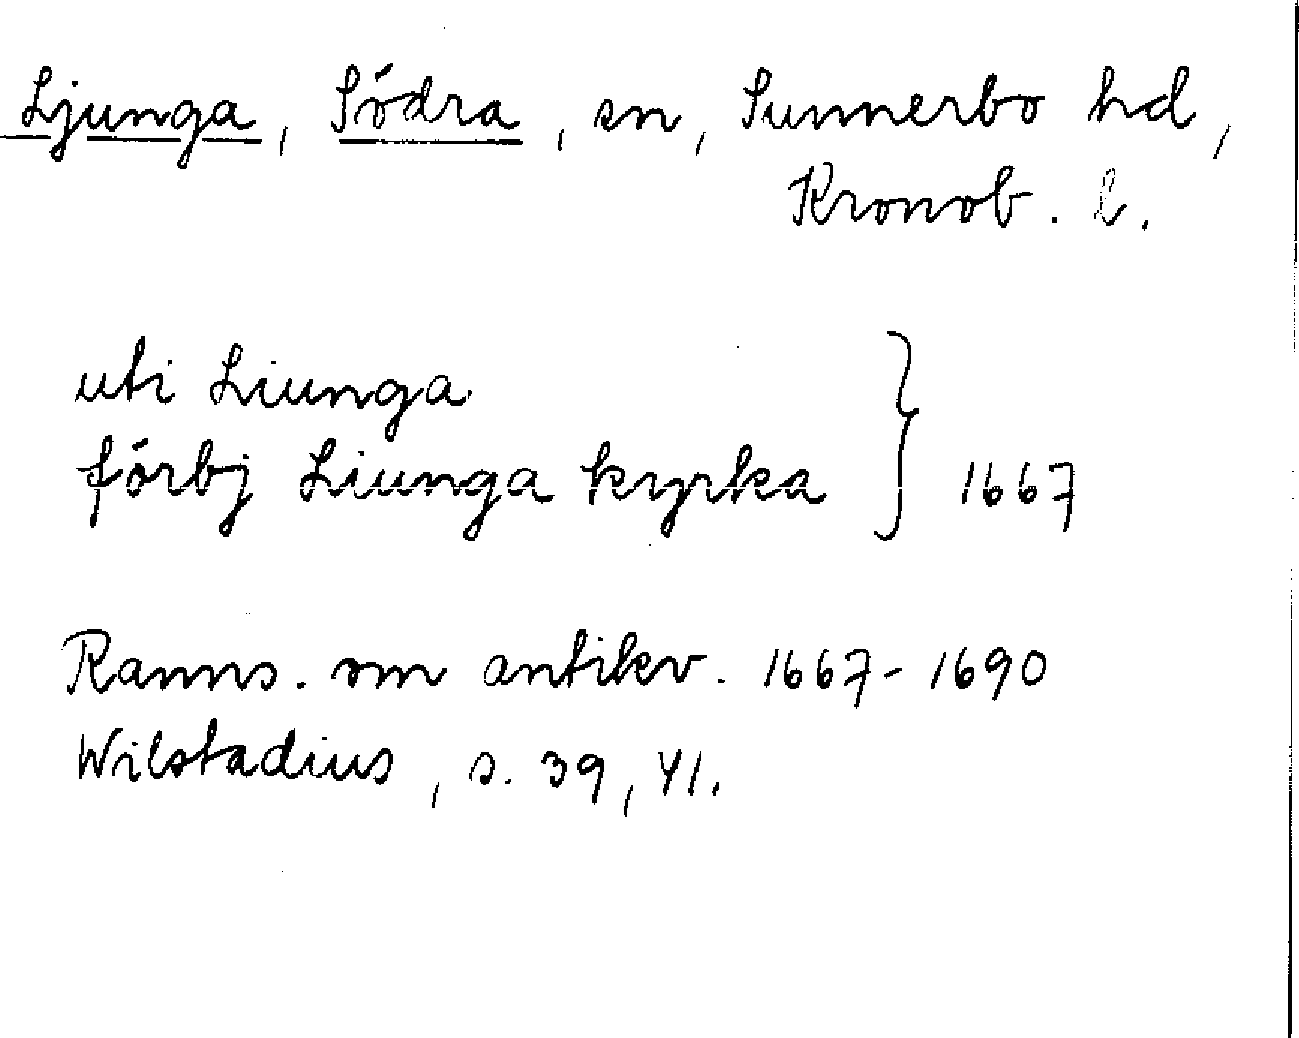 Ljunga, Södra, sn, Sunnerbo hd,
Kronob. l.
uti Liunga
förbj Liunga kyrka } 1667
Ranns. om antikv. 1667-1690
Wilstadius, s. 39, 41.